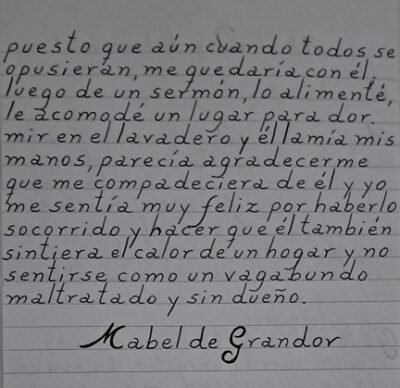 puesto que aún cuando todos se
opusieran, me quedaría con él.
luego de un sermón, lo alimenté,
le acomodé un lugar para dor.
mir en el lavadero y él lamía mis
manos, parecía agradecerme
que me compadeciera de él y yo
me sentía muy feliz por haberlo
socorrido y hacer que él también
sintiera el calor de un hogar y no
sentirse como un vagabundo
maltratado y sin dueño.
Mabel de Grandor